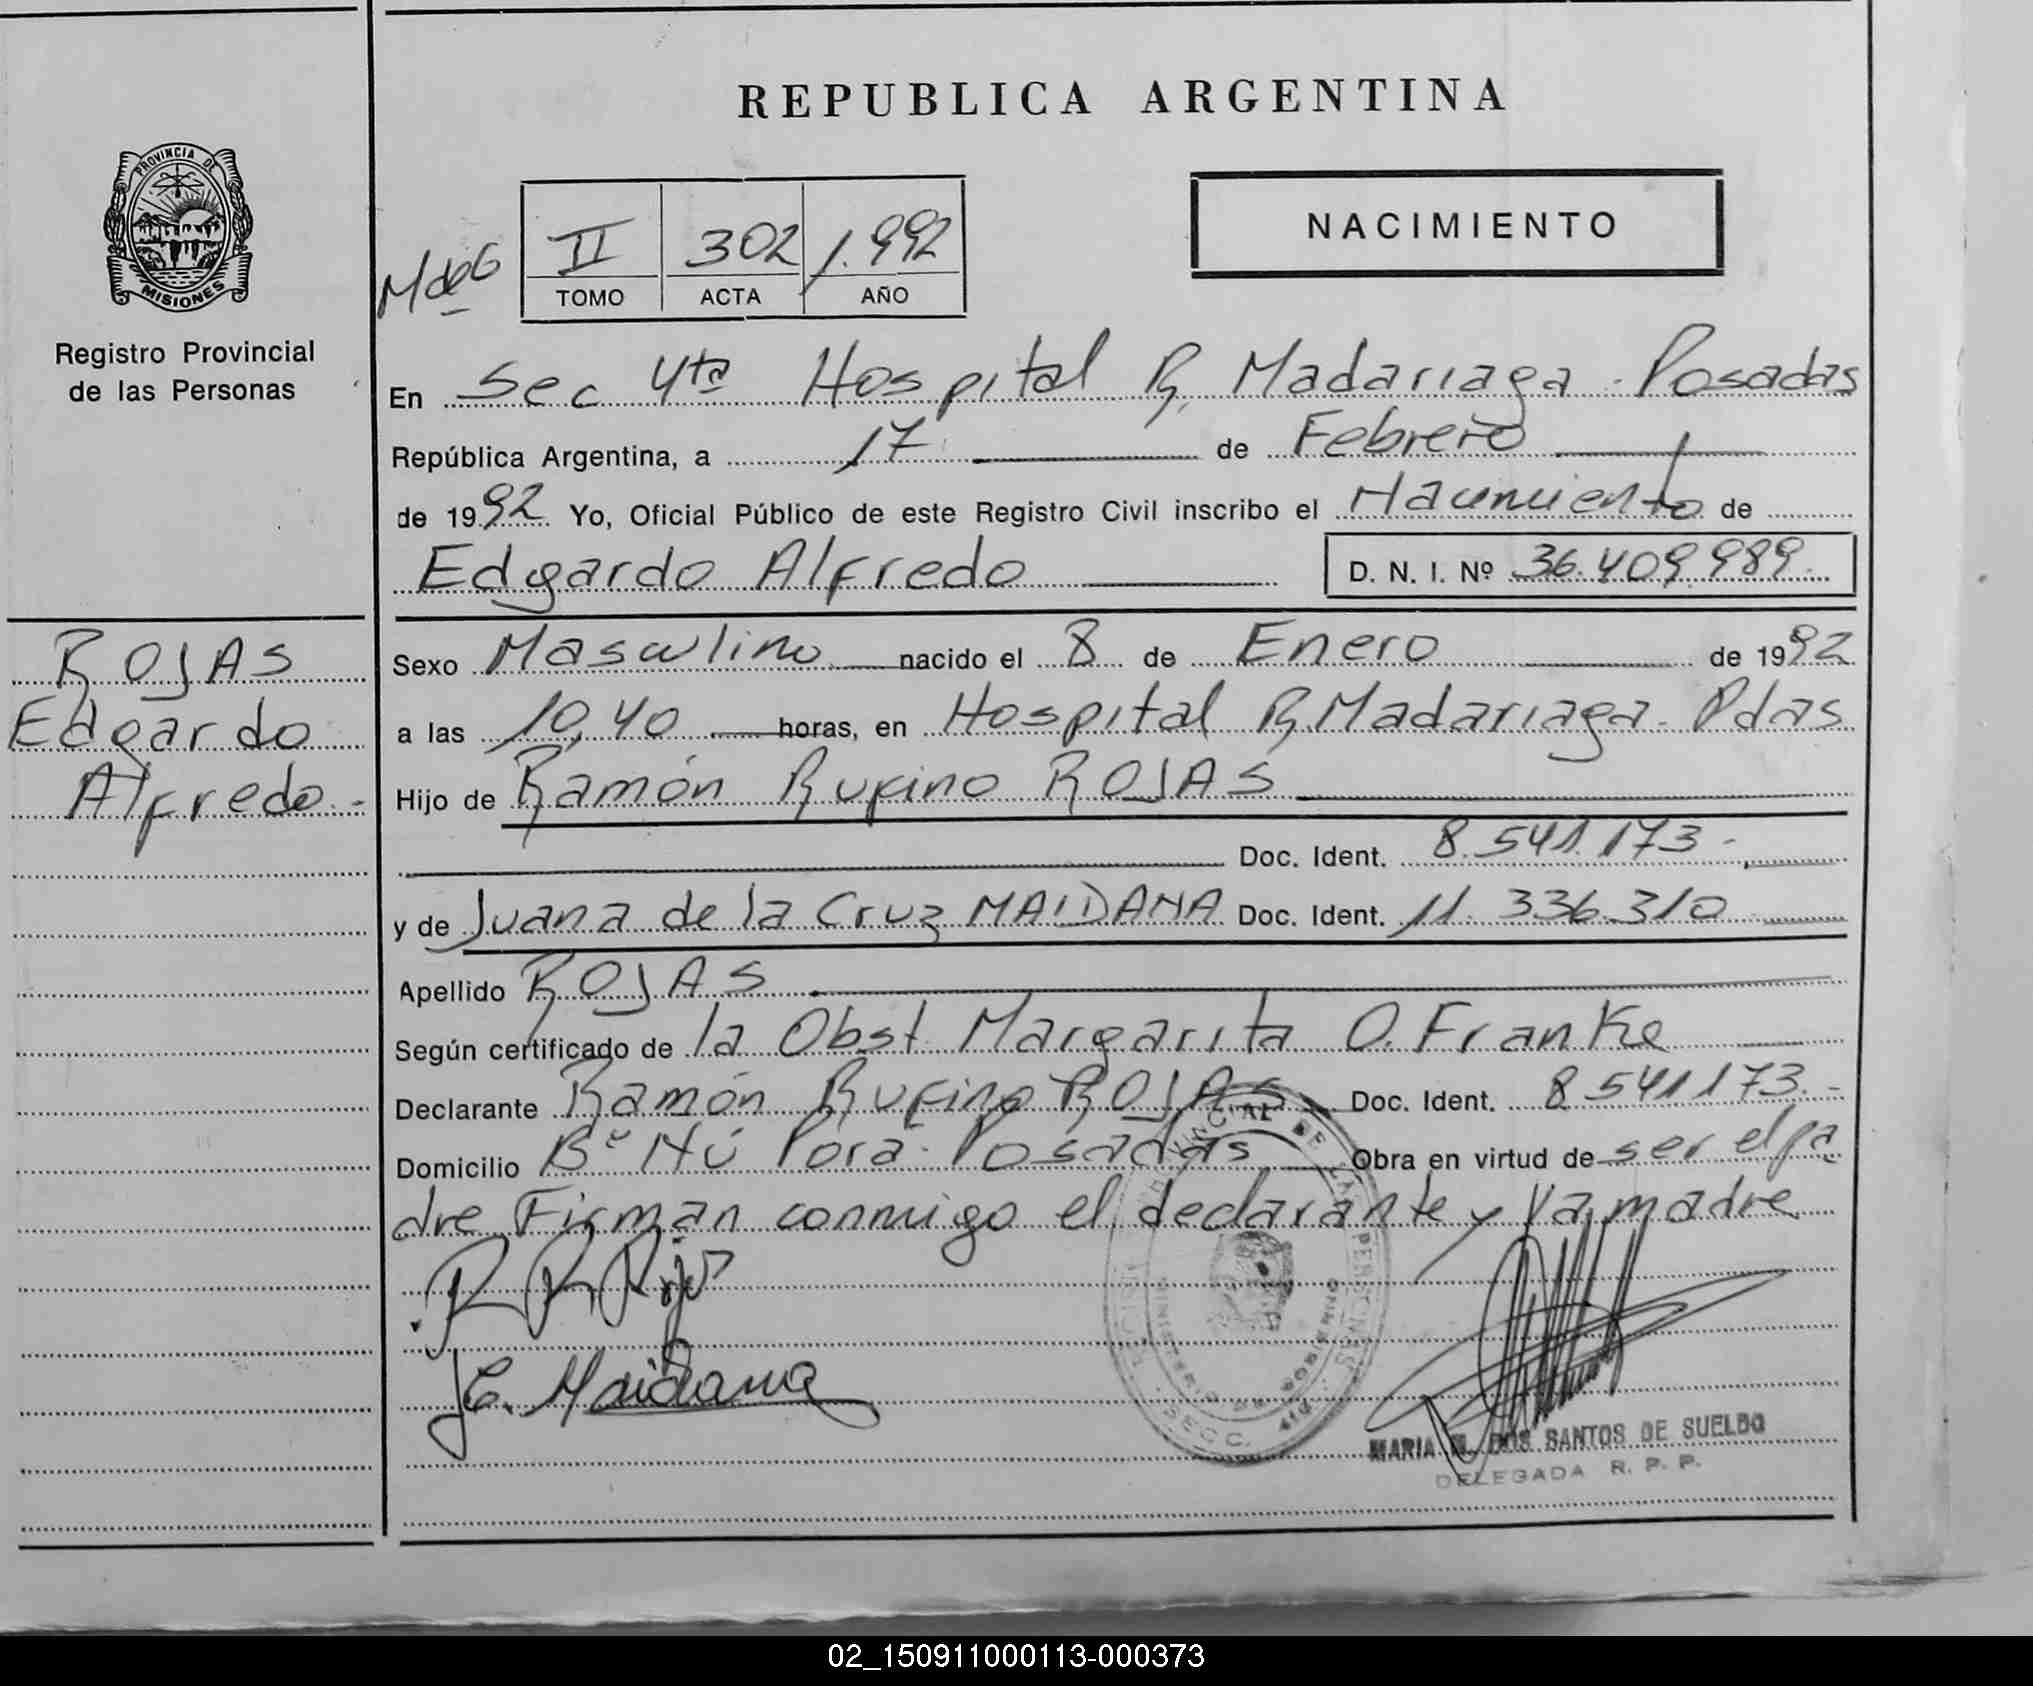 REPUBLICA ARGENTINA
PROVINCIA DE
MISIONES
Registro Provincial
de las Personas
NACIMIENTO
II 302 1.992
TOMO ACTA AÑO
En Sec 4ta Hospital R. Madariaga - Posadas
República Argentina, a 17 de Febrero
de 1992 Yo, Oficial Público de este Registro Civil inscribo el Nacimiento de
Edgardo Alfredo D. N. I. Nº 36.409.989
ROJAS
Edgardo
Alfredo.-
Sexo Masculino nacido el 8 de Enero de 1992
a las 10,40 horas, en Hospital R. Madariaga - Pdas
Hijo de Ramón Rufino ROJAS
Doc. Ident. 8.541.173-
y de Juana de la Cruz MAIDANA Doc. Ident. 11.336.310
Apellido ROJAS
Según certificado de la Obst Margarita O. Franke
Declarante Ramón Rufino ROJAS Doc. Ident. 8541173.-
Domicilio Bº Ñú Porá - Posadas Obra en virtud de ser el pa
dre Firman conmigo el declarante y la madre
R R Rojas
J C. Maidana
SECC.
MARIA DOS SANTOS DE SUELDO
DELEGADA R. P. P.
02_150911000113-000373